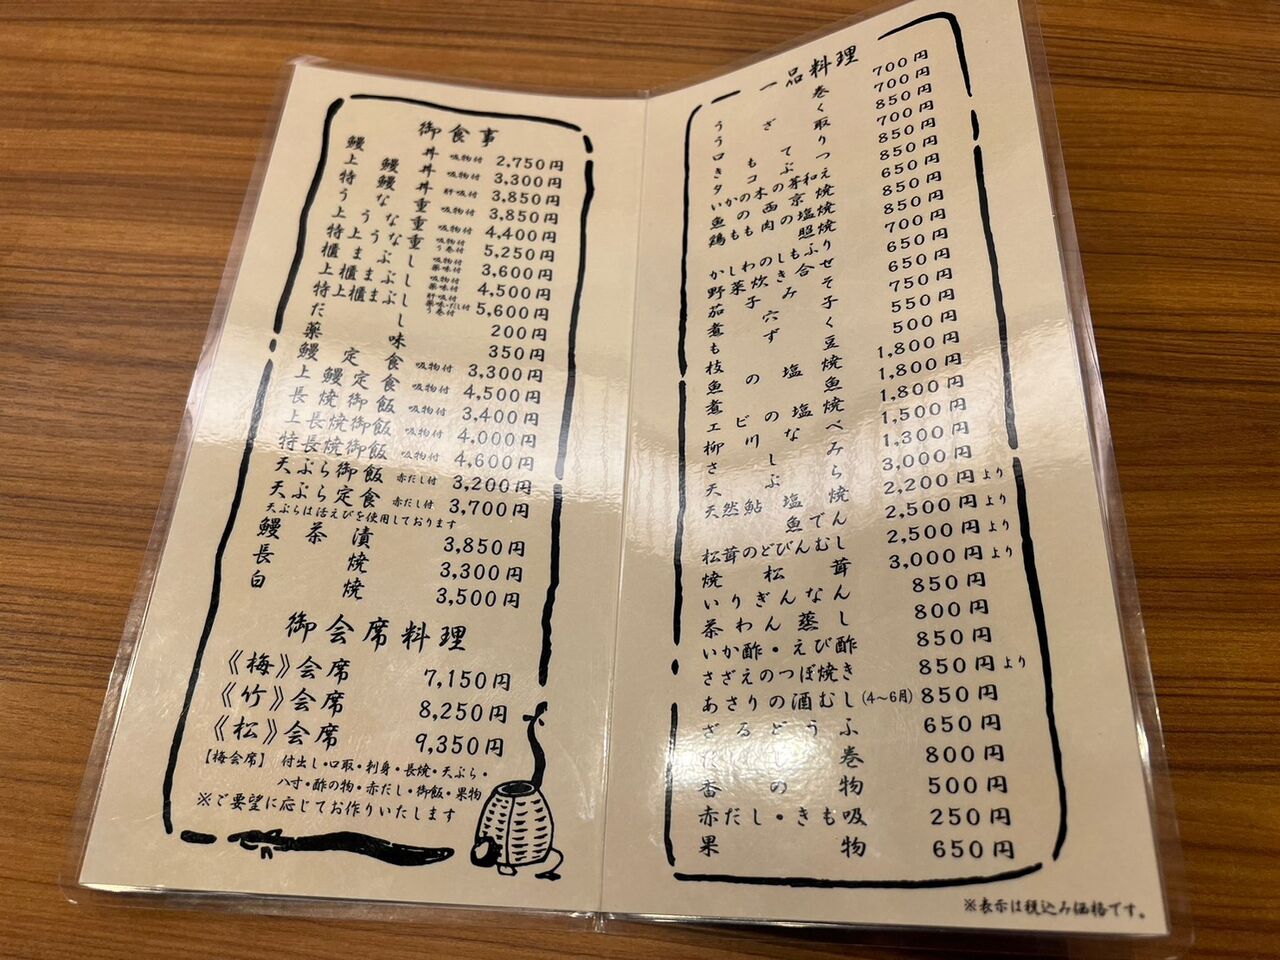 御食事
鰻丼 吸物付 2,750円
上鰻丼 吸物付 3,300円
特鰻丼 肝吸付 3,850円
うな重 吸物付 3,850円
上うな重 吸物付 4,400円
特上うな重 吸物付 う巻付 5,250円
櫃まぶし 吸物付 薬味付 3,600円
上櫃まぶし 吸物付 薬味付 4,500円
特上櫃まぶし 肝吸付 薬味・だし付 う巻付 5,600円
だし 200円
薬味 350円
鰻定食 吸物付 3,300円
上鰻定食 吸物付 4,500円
長焼御飯 吸物付 3,400円
上長焼御飯 吸物付 4,000円
特長焼御飯 吸物付 4,600円
天ぷら御飯 赤だし付 3,200円
天ぷら定食 赤だし付 3,700円
天ぷらは活えびを使用しております
鰻茶漬 3,850円
長焼 3,300円
白焼 3,500円
御会席料理
《梅》会席 7,150円
《竹》会席 8,250円
《松》会席 9,350円
【梅会席】 付出し・口取・刺身・長焼・天ぷら・
八寸・酢の物・赤だし・御飯・果物
※ご要望に応じてお作りいたします
一品料理
う巻 700円
うざく 700円
口取 850円
きもてり 700円
タコぶつ 850円
いかの木の芽和え 850円
魚の西京焼 650円
鶏もも肉の塩焼 850円
照焼 850円
かしわのしもふり 700円
野菜炊き合せ 650円
茄子みそ 650円
煮穴子 750円
もずく 550円
枝豆 500円
魚の塩焼 1,800円
煮魚 1,800円
エビの塩焼 1,800円
柳川なべ 1,500円
さしみ 1,300円
天ぷら 3,000円
天然鮎塩焼 2,200円より
魚でん 2,500円より
松茸のどびんむし 2,500円より
焼松茸 3,000円より
いりぎんなん 850円
茶わん蒸し 800円
いか酢・えび酢 850円
さざえのつぼ焼き 850円より
あさりの酒むし(4〜6月) 850円
ざるどうふ 650円
だし巻 800円
香の物 500円
赤だし・きも吸 250円
果物 650円
※表示は税込み価格です。